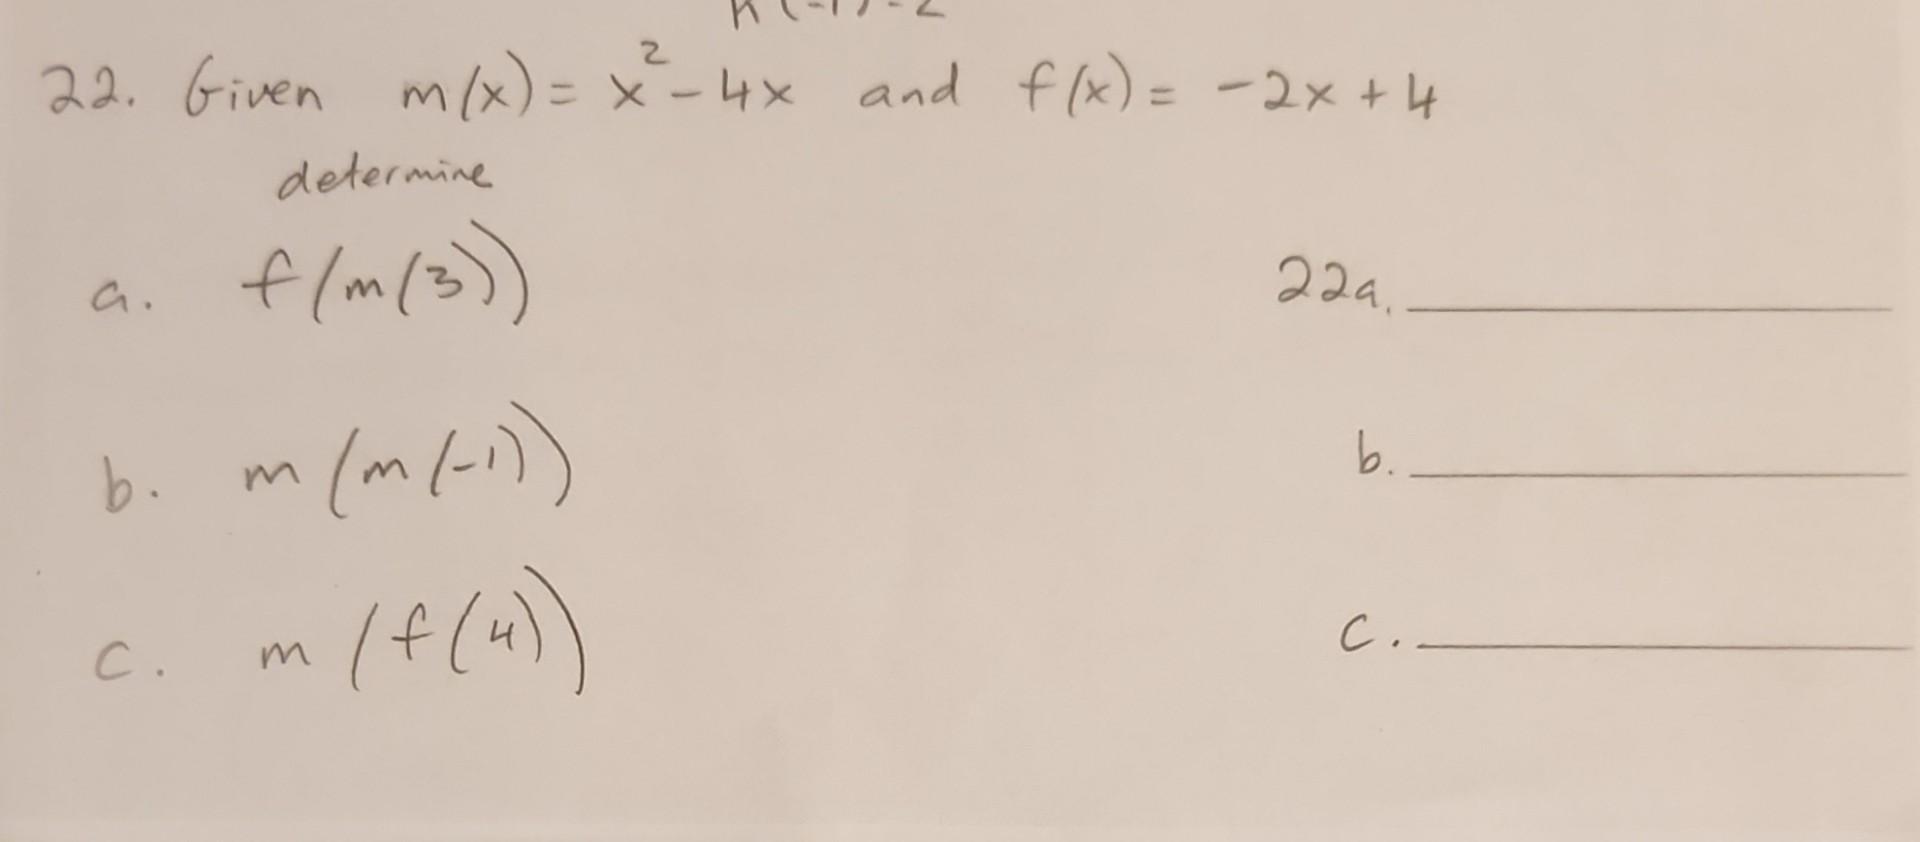 22. Given m(x) = x² - 4x and f(x) = -2x + 4
determine
a. f(m(3)) 22a.
b. m(m(-1)) b.
c. m(f(4)) c.